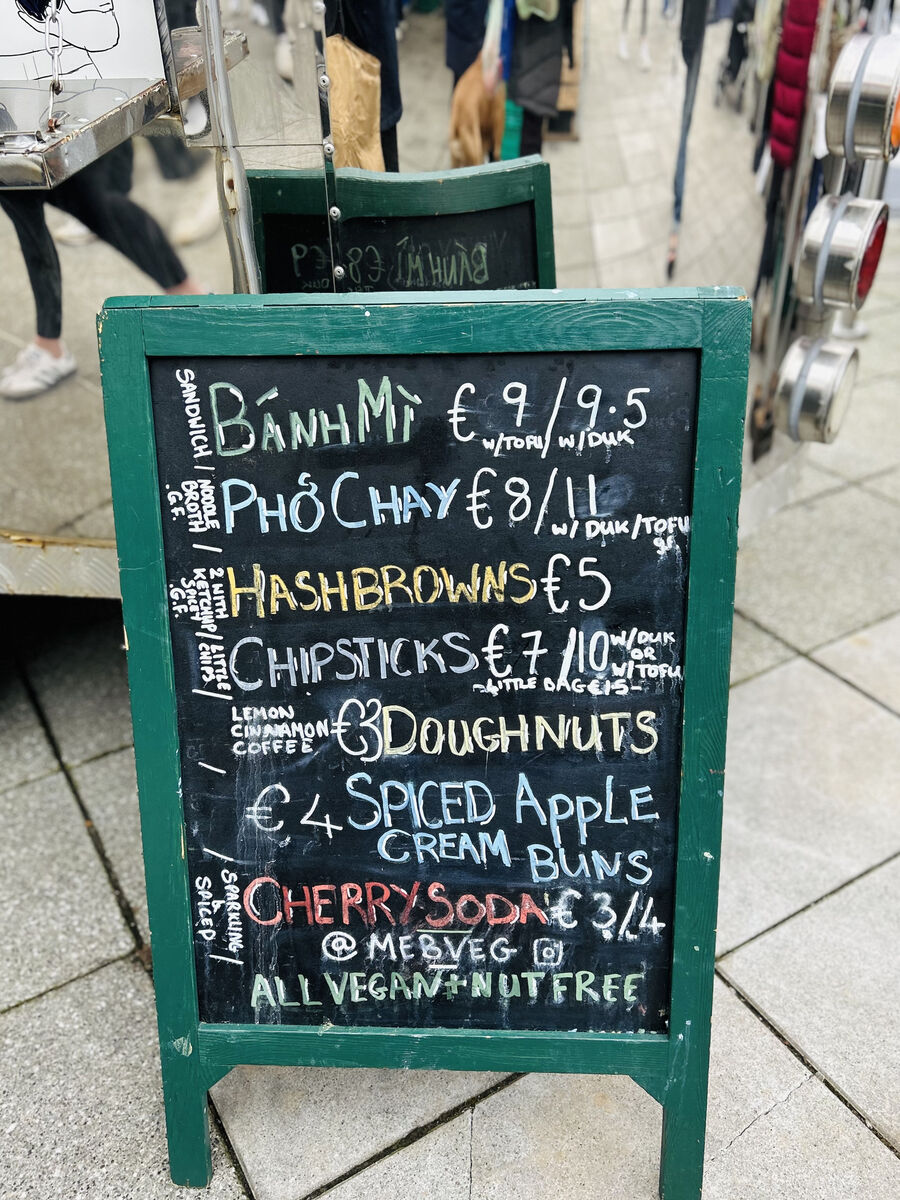 BÁNH MÌ €9/9.5
W/TOFU/ W/DUK
SANDWICH /
PHỞ CHAY €8/11
W/ DUK/TOFU
NOODLE
BROTH /
G.F.
HASHBROWNS €5
2 WITH
KETCHUP/
SPICY
G.F.
CHIPSTICKS €7/10 W/DUK
OR
W/TOFU
~LITTLE BAG €15-
LITTLE
CHIPS /
LEMON
CINNAMON
COFFEE
€3 DOUGHNUTS
€4 SPICED APPLE
CREAM BUNS
CHERRY SODA €3/4
SPARKLING
&
SPICED /
@MEBVEG
ALL VEGAN + NUT FREE
BÁNH MÌ €8